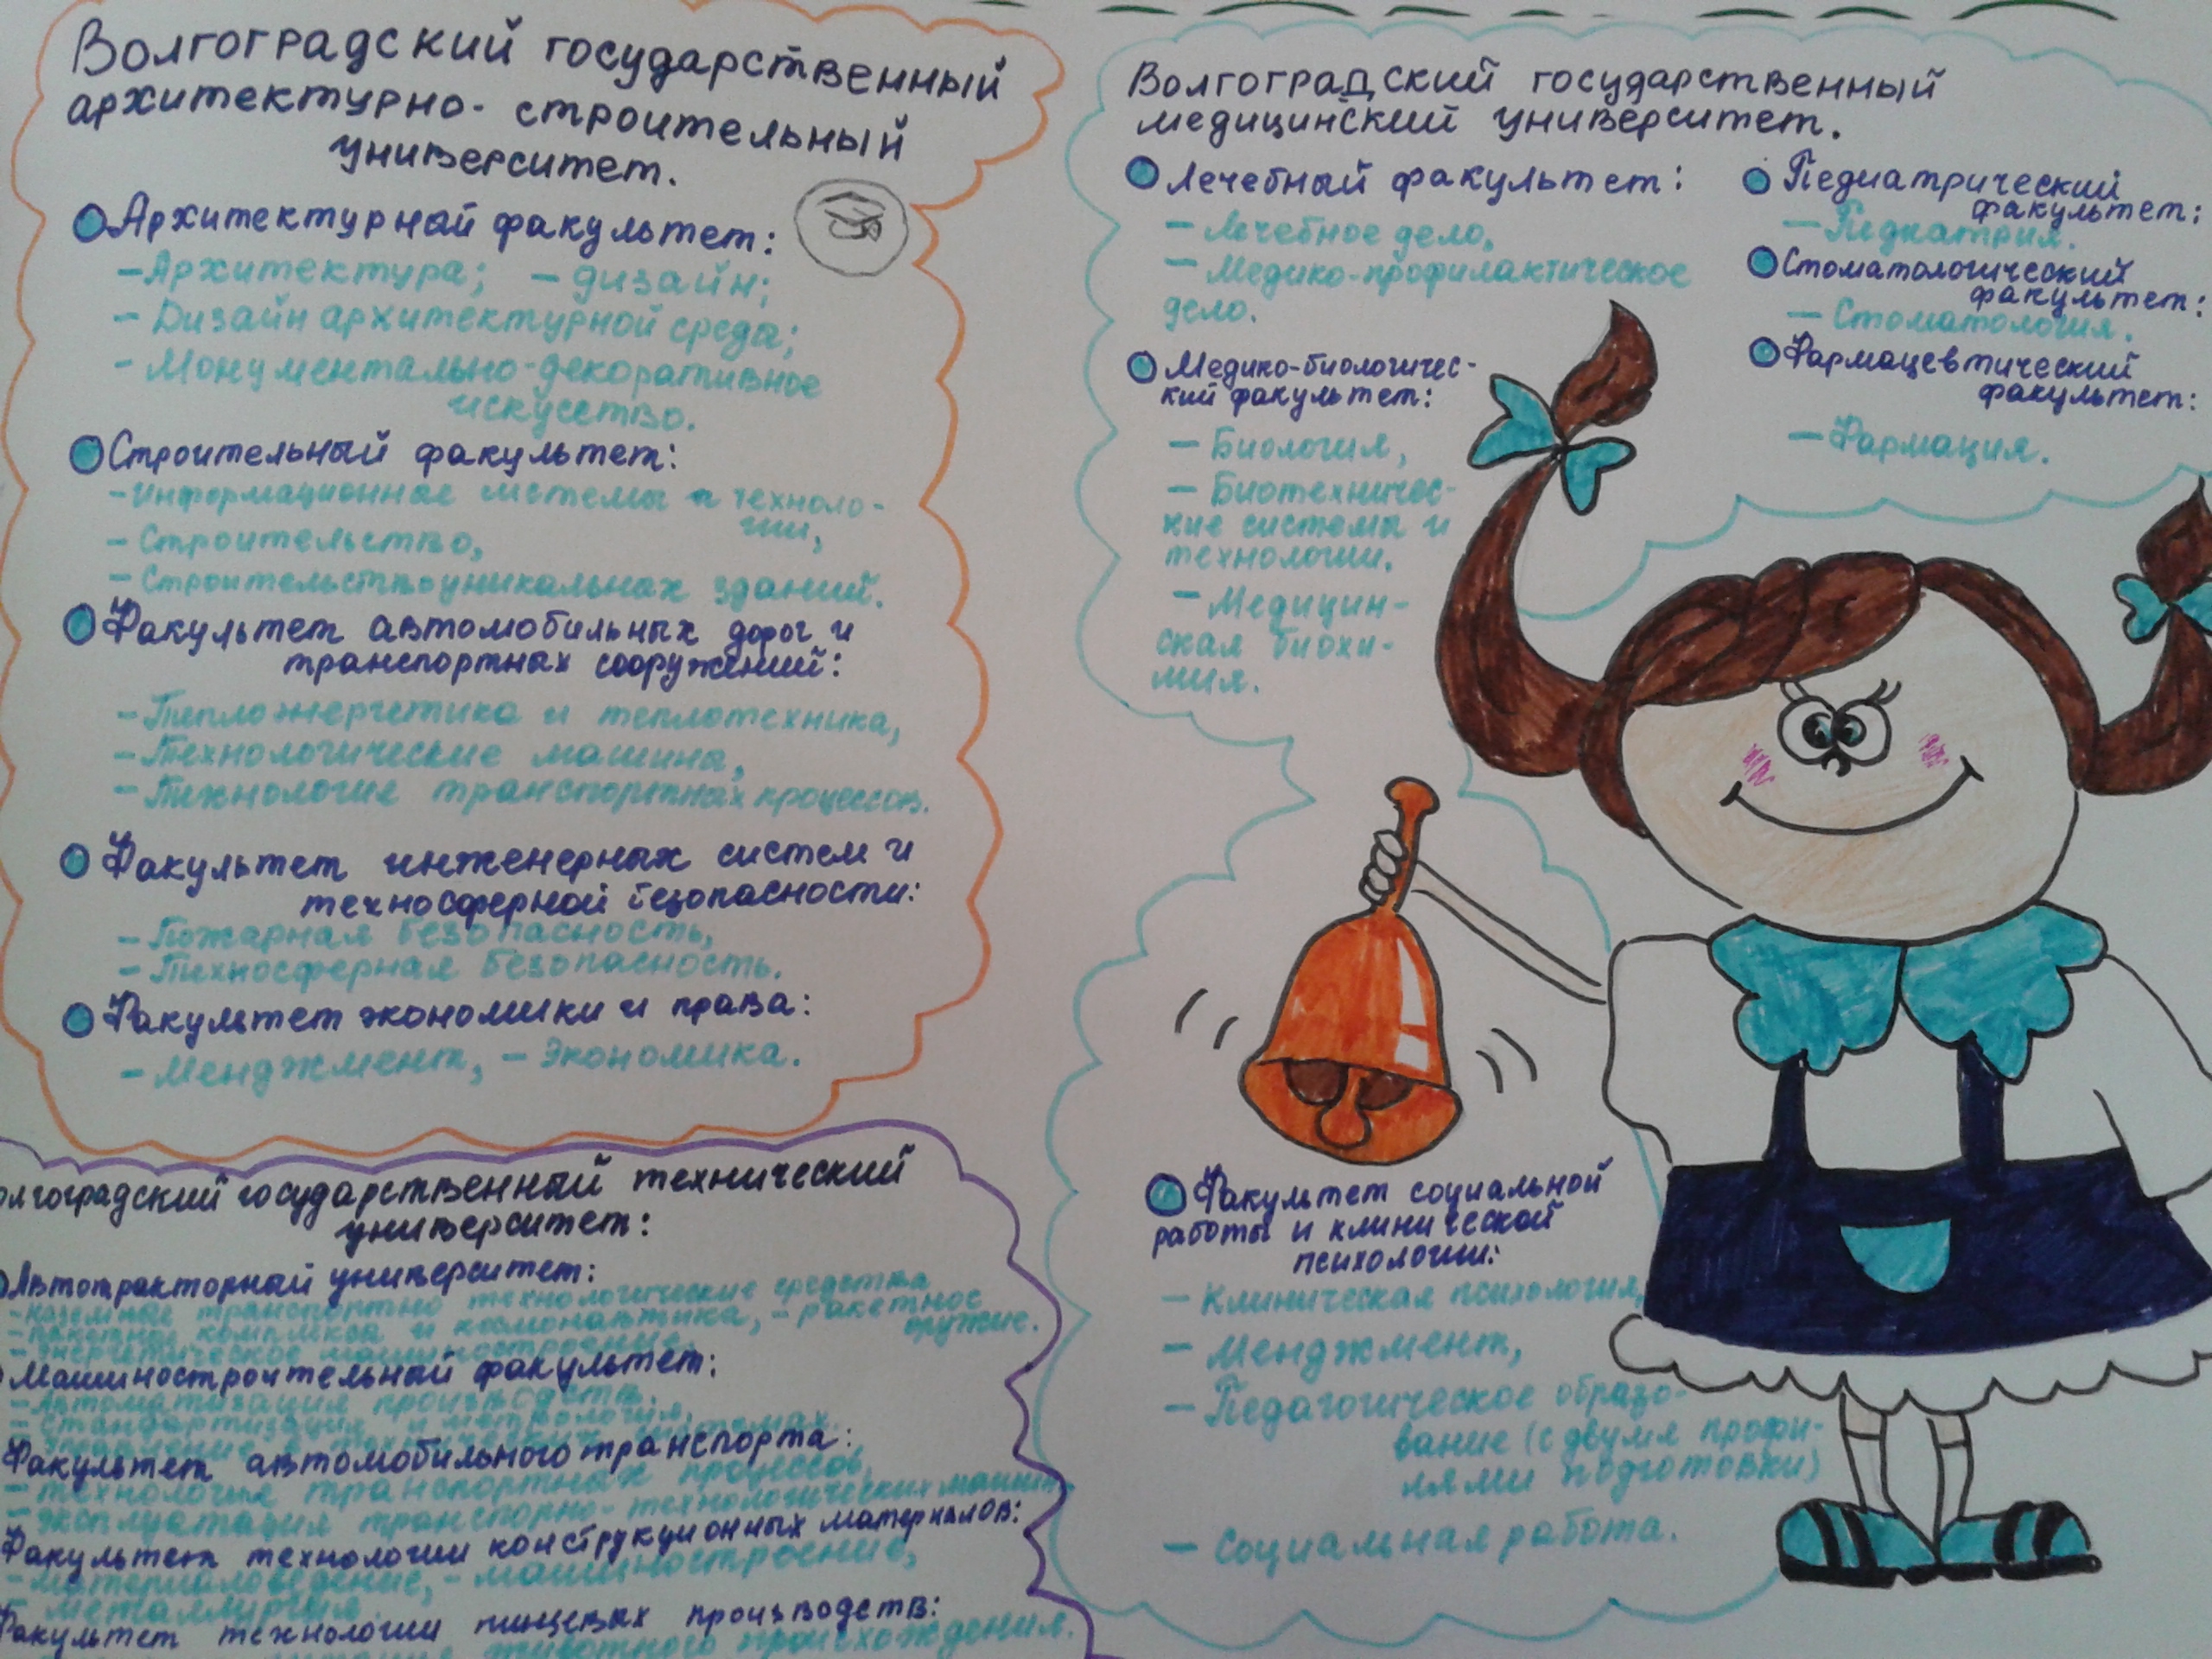 Волгоградский государственный
архитектурно-строительный
университет.
Архитектурный факультет:
-Архитектура; -дизайн;
-Дизайн архитектурной среда;
-Монументально-декоративное
искусство.
Строительный факультет:
-Информационные системы и техноло-
гии,
-Строительство,
-Строительство уникальных зданий.
Факультет автомобильных дорог и
транспортных сооружений:
-Теплоэнергетика и теплотехника,
-Технологические машины,
-Технология транспортных процессов.
Факультет инженерных систем и
техносферной безопасности:
-Пожарная безопасность,
-Техносферная безопасность.
Факультет экономики и права:
-Менеджмент, -Экономика.
олгоградский государственный технический
университет:
Автотракторный университет:
-наземные транспортно технологические средства
-ракетные комплексы и космонавтика, -ракетное
оружие.
-энергетическое машиностроение.
Машиностроительный факультет:
-Автоматизация производств,
-Стандартизация и метрология,
системах.
Факультет автомобильного транспорта:
-технология транспортных процессов,
-эксплуатация транспорно-технологических машин
Факультет технологии конструкционных материалов:
-материаловедение, -машиностроение,
-металлургия.
Факультет технологии пищевых производств:
животного происхождения.
Волгоградский государственный
медицинский университет.
Лечебный факультет:
-Лечебное дело,
-Медико-профилактическое
дело.
Медико-биологичес-
кий факультет:
-Биология,
-Биотехничес-
кие системы и
технологии.
-Медицин-
ская биохи-
мия.
Педиатрический
факультет:
-Педиатрия.
Стоматологический
факультет:
-Стоматология.
Фармацевтический
факультет:
-Фармация.
Факультет социальной
работы и клинической
психологии:
-Клиническая психология,
-Менеджмент,
-Педагогическое образо-
вание (с двумя профи-
лями подготовки)
-Социальная работа.